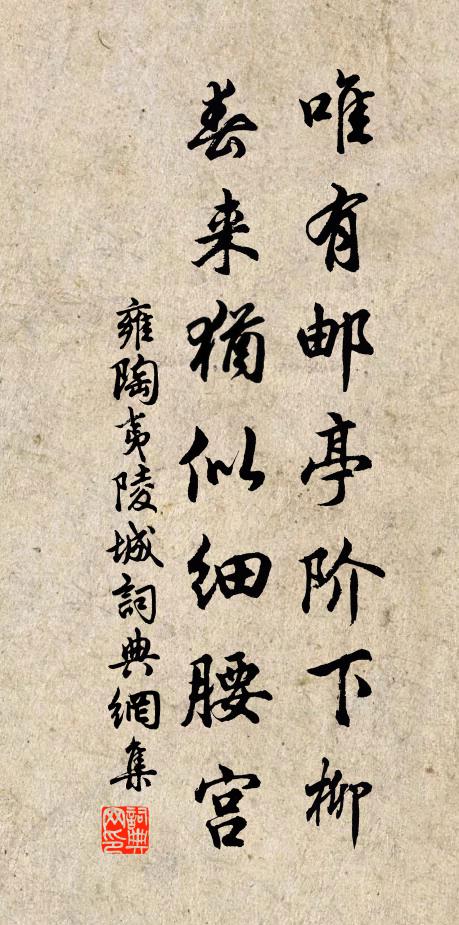 唯有邮亭阶下柳
春来犹似细腰宫
雍陶夷陵城詞典網集
詞典
网印